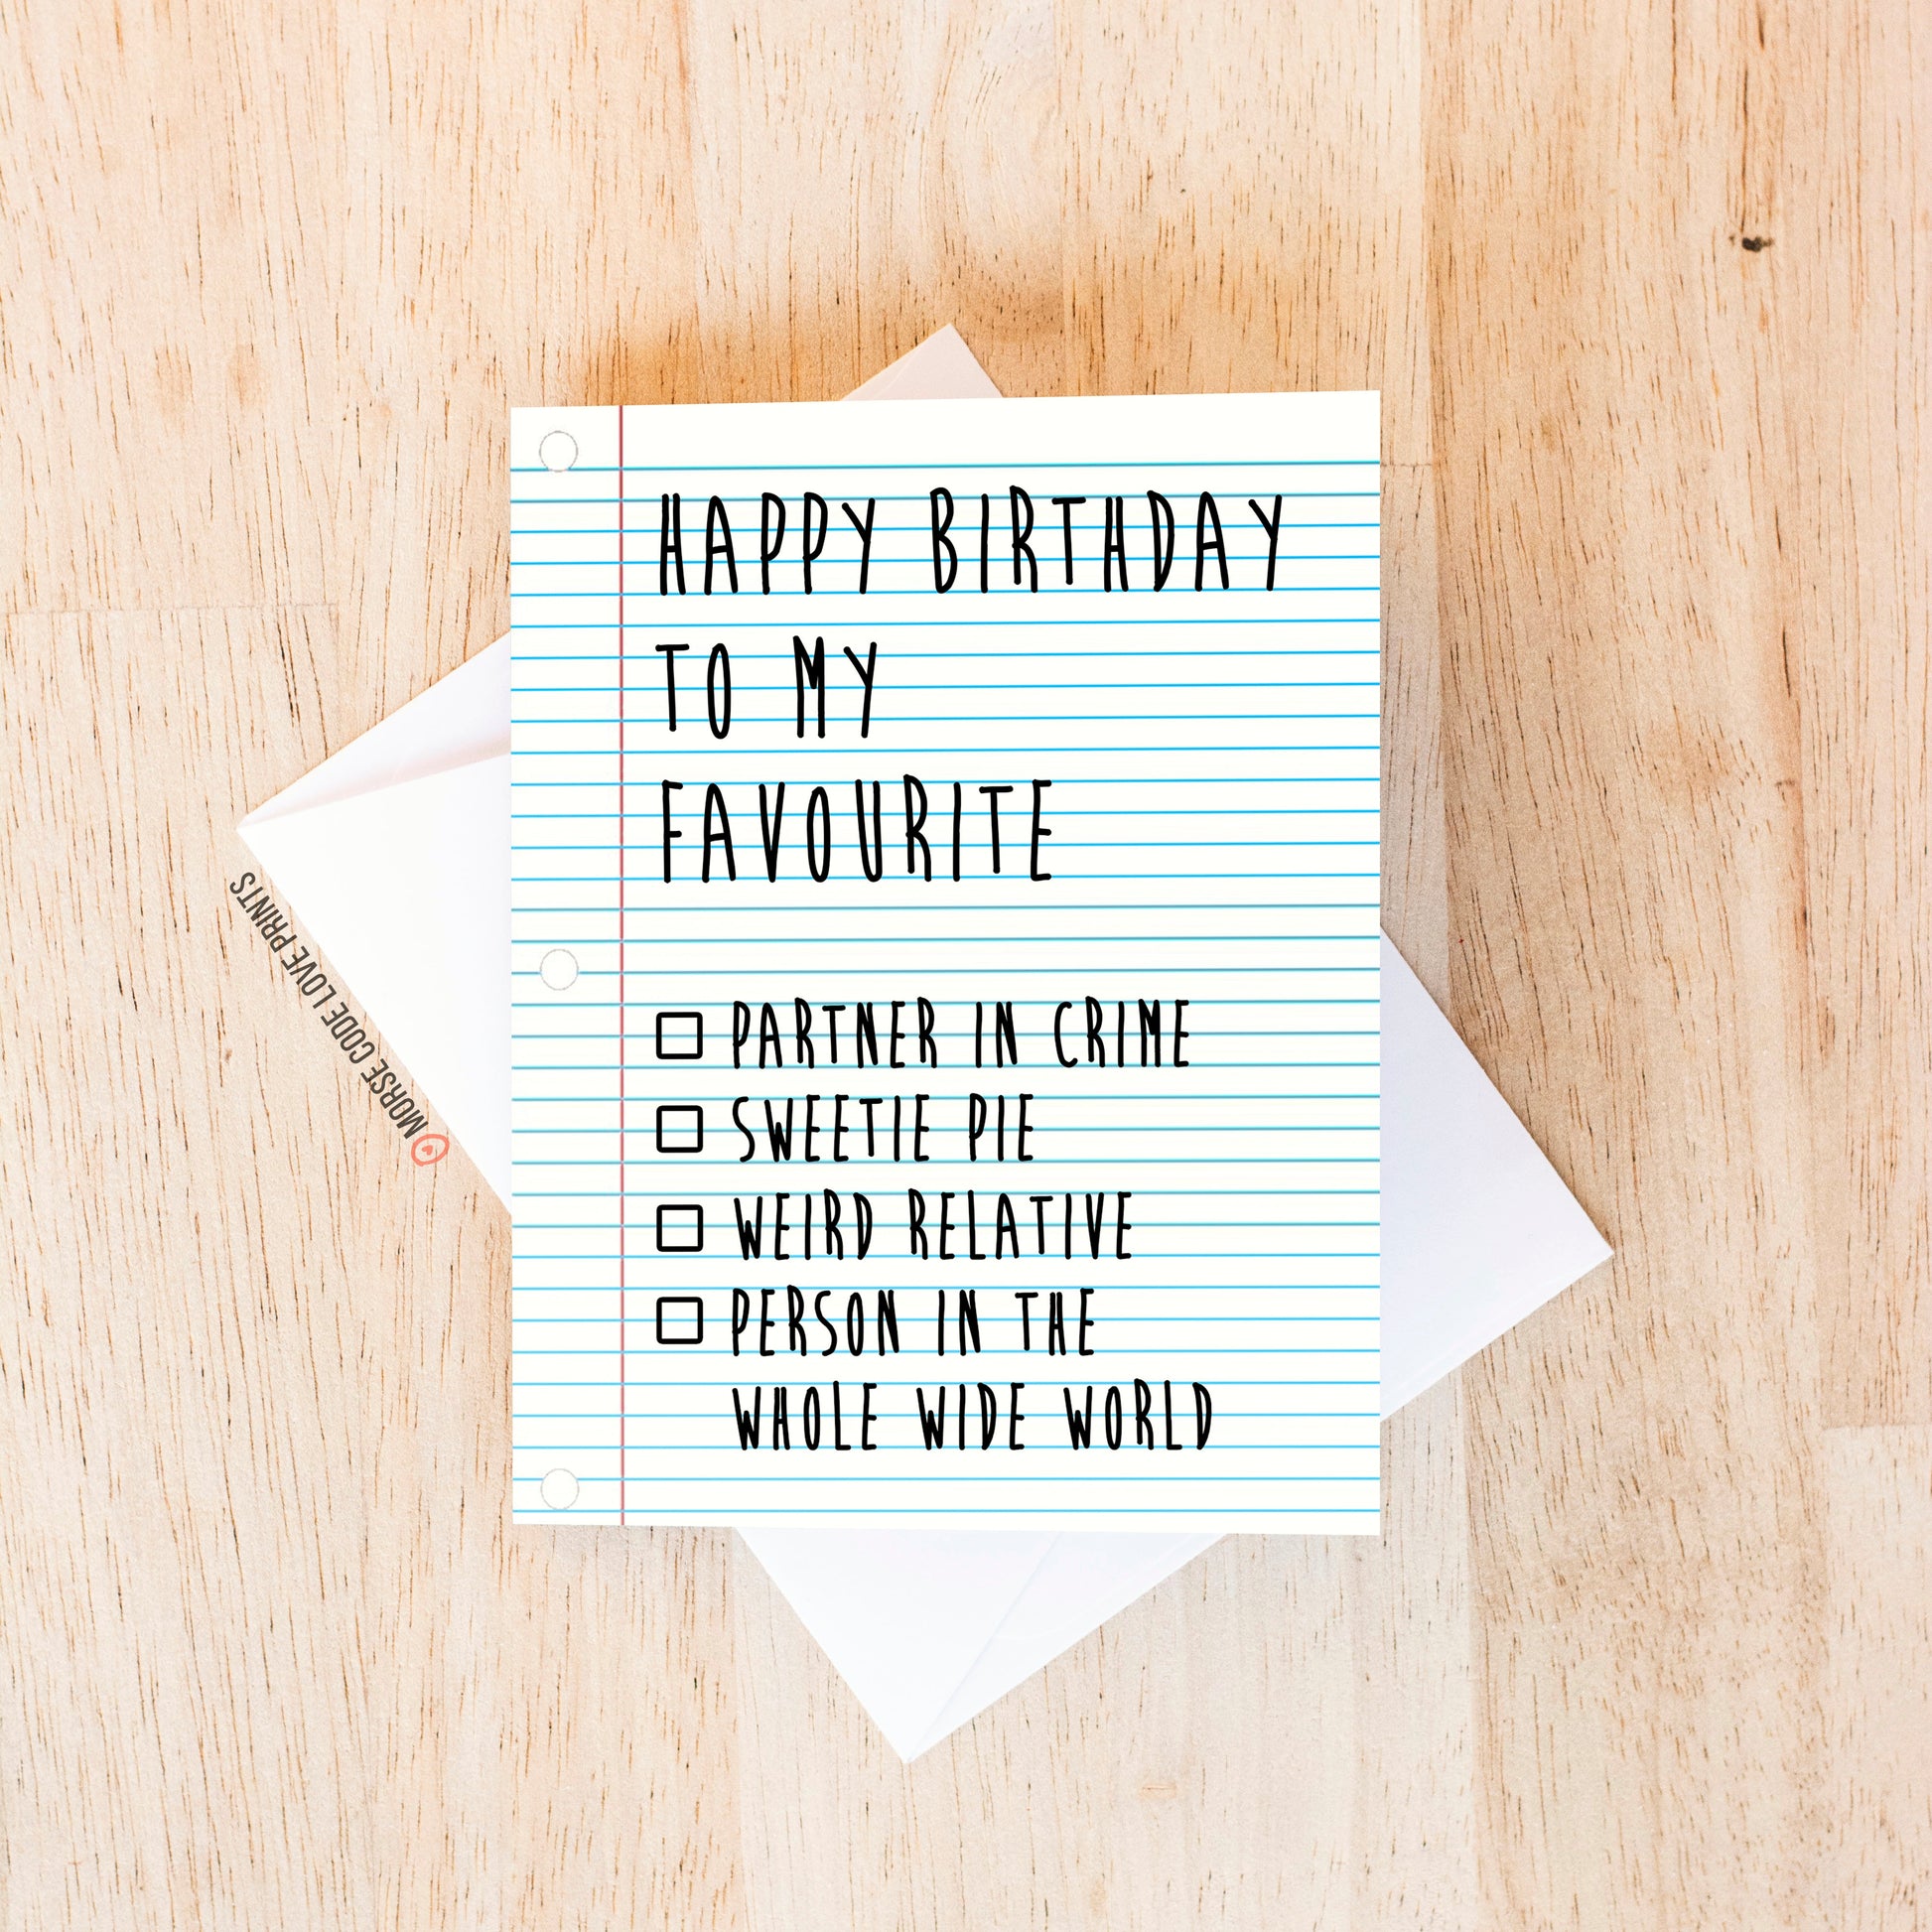 HAPPY BIRTHDAY
TO MY
FAVOURITE
PARTNER IN CRIME
SWEETIE PIE
WEIRD RELATIVE
PERSON IN THE
WHOLE WIDE WORLD
MORSE CODE LOVE PRINTS